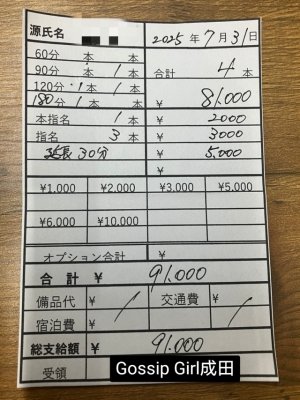 源氏名 2025年7月31日
60分 本 本
90分 本 1本 合計 4本
120分 1本 1本 ¥ 81,000
180分 1本 本
本指名 1本 ¥ 2000
指名 3本 ¥ 3000
延長30分 ¥ 5,000
¥
¥1,000 ¥2,000 ¥3,000 ¥5,000
¥6,000 ¥10,000
オプション合計 ¥
合計 ¥ 91,000
備品代 ¥ / 交通費 ¥ /
宿泊費 ¥
総支給額 ¥ 91,000
受領
Gossip Girl成田